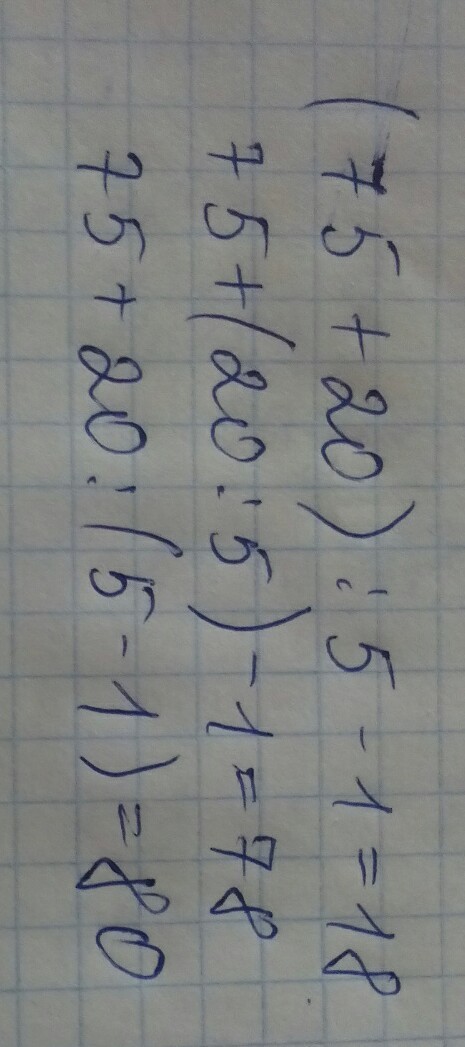 (75+20):5-1=18
75+(20:5)-1=78
75+20:(5-1)=80